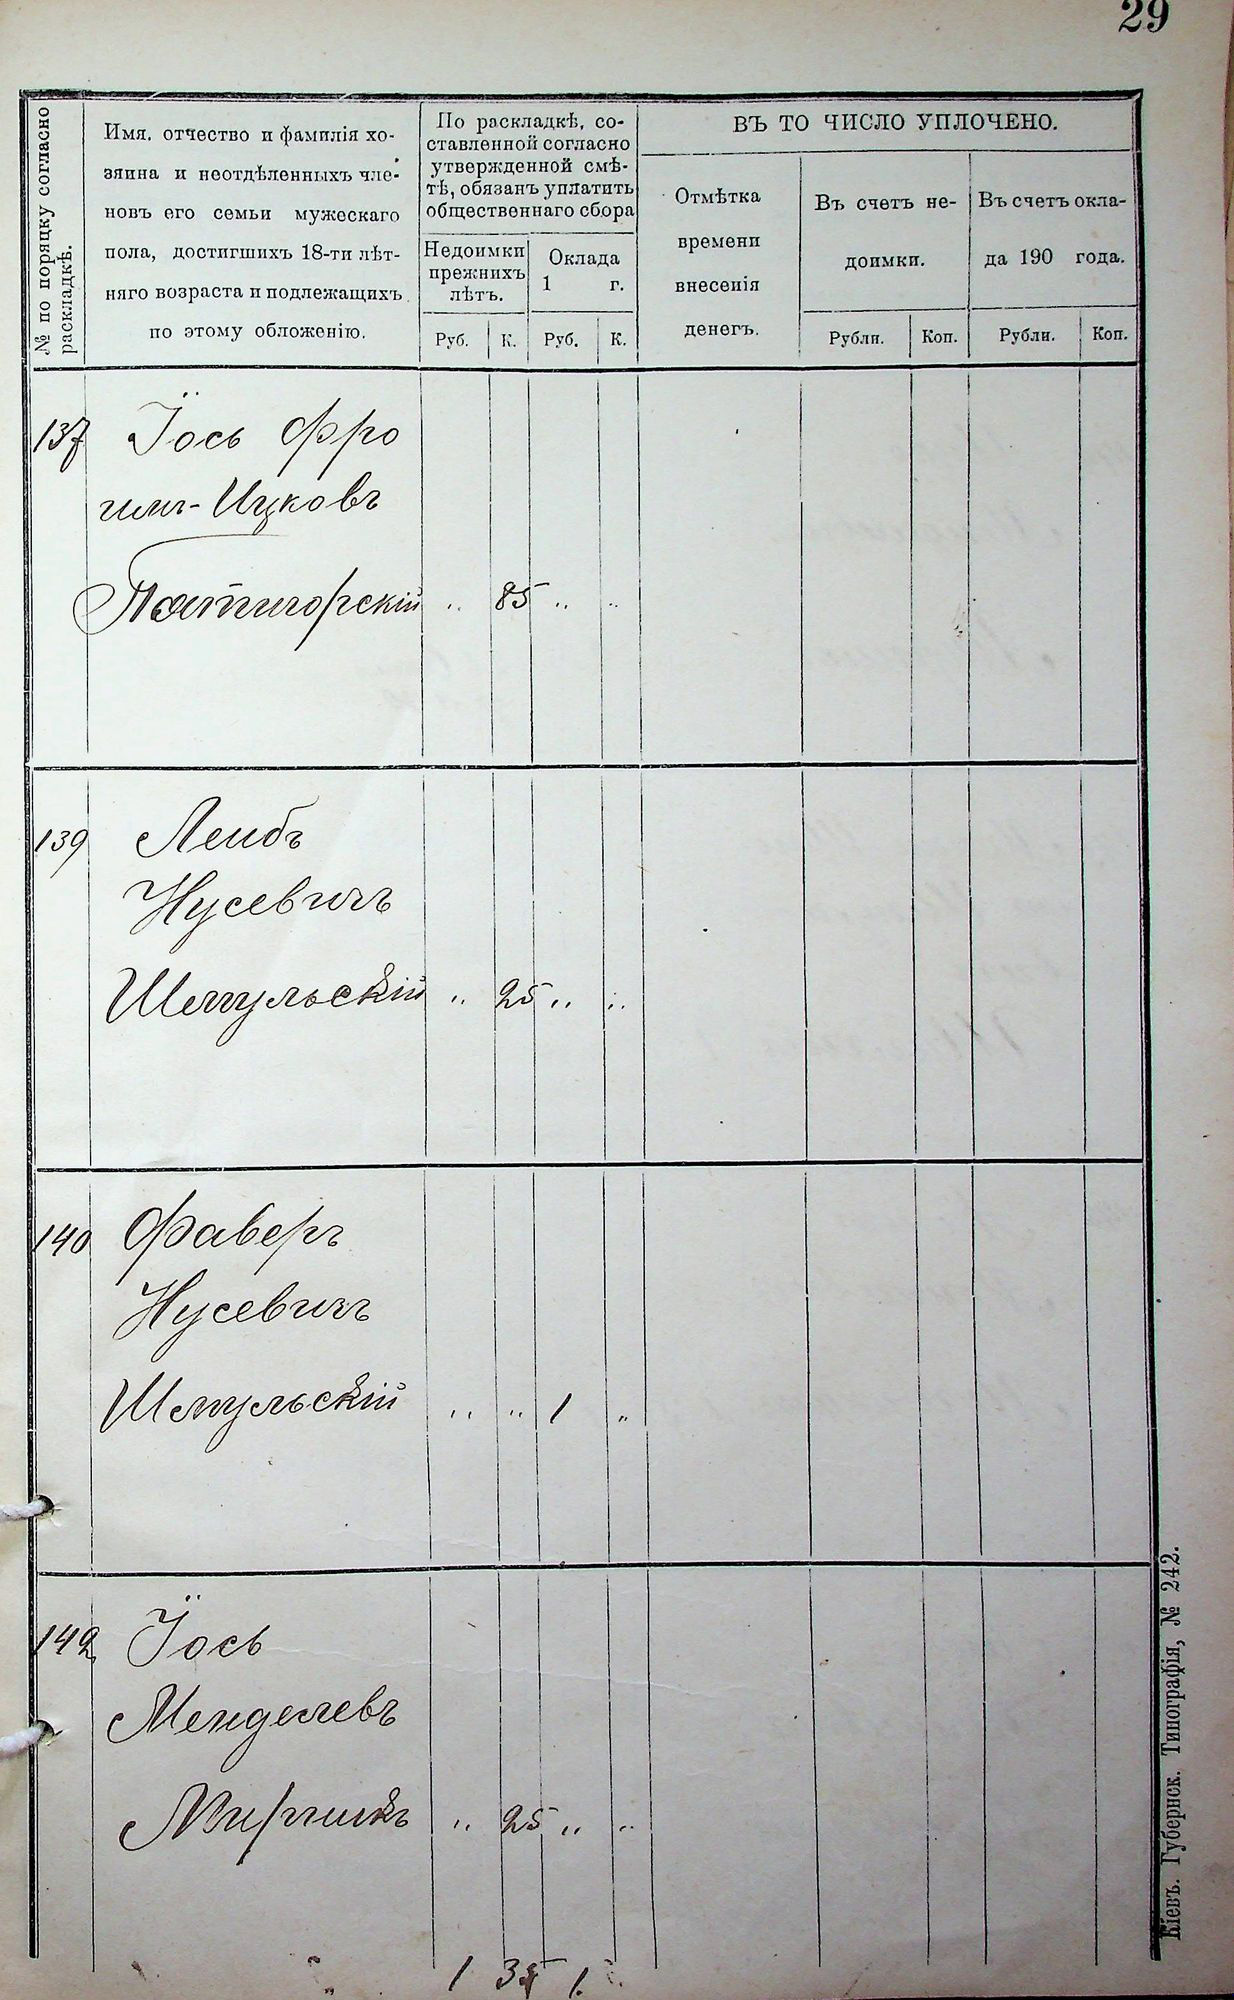 29
№ по поряцку согласно
раскладкѣ.
Имя, отчество и фамилія хо-
зяина и неотдѣленныхъ чле-
новъ его семьи мужескаго
пола, достигшихъ 18-ти лѣт-
няго возраста и подлежащихъ
по этому обложенію.
По раскладкѣ, со-
ставленной согласно
утвержденной смѣ-
тѣ, обязанъ уплатить
общественнаго сбора
Недоимки
прежнихъ
лѣтъ.
Оклада
1 г.
Руб. К. Руб. К.
ВЪ ТО ЧИСЛО УПЛОЧЕНО.
Отмѣтка
времени
внесенія
денегъ.
Въ счетъ не-
доимки.
Рубли. Коп.
Въ счетъ окла-
да 190 года.
Рубли. Коп.
137 Іось Фро
имъ-Ицковъ
Пятигорскій " 85 " "
139 Леибъ
Нусевичъ
Шмульскій " 25 " "
140 Фаверъ
Нусевичъ
Шмульскій " " 1 "
142 Іось
Менделевъ
" 25 " "
1 35 1
Кіевъ. Губернск. Типографія, № 242.